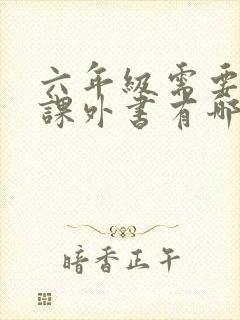 六年级需要
課外書有哪
暗香正午